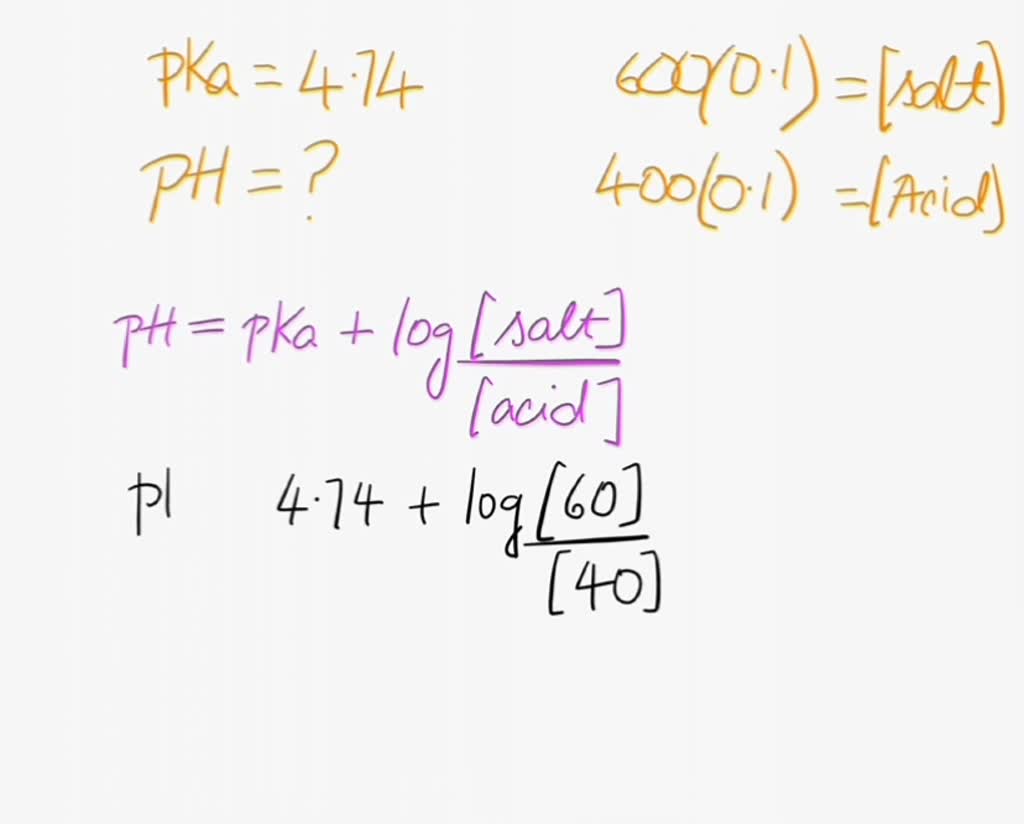 pKa = 4.74
600(0.1) = [salt]
pH = ?
400(0.1) = [Acid]
pH = pKa + log [salt]
[acid]
pl 4.74 + log [60]
[40]